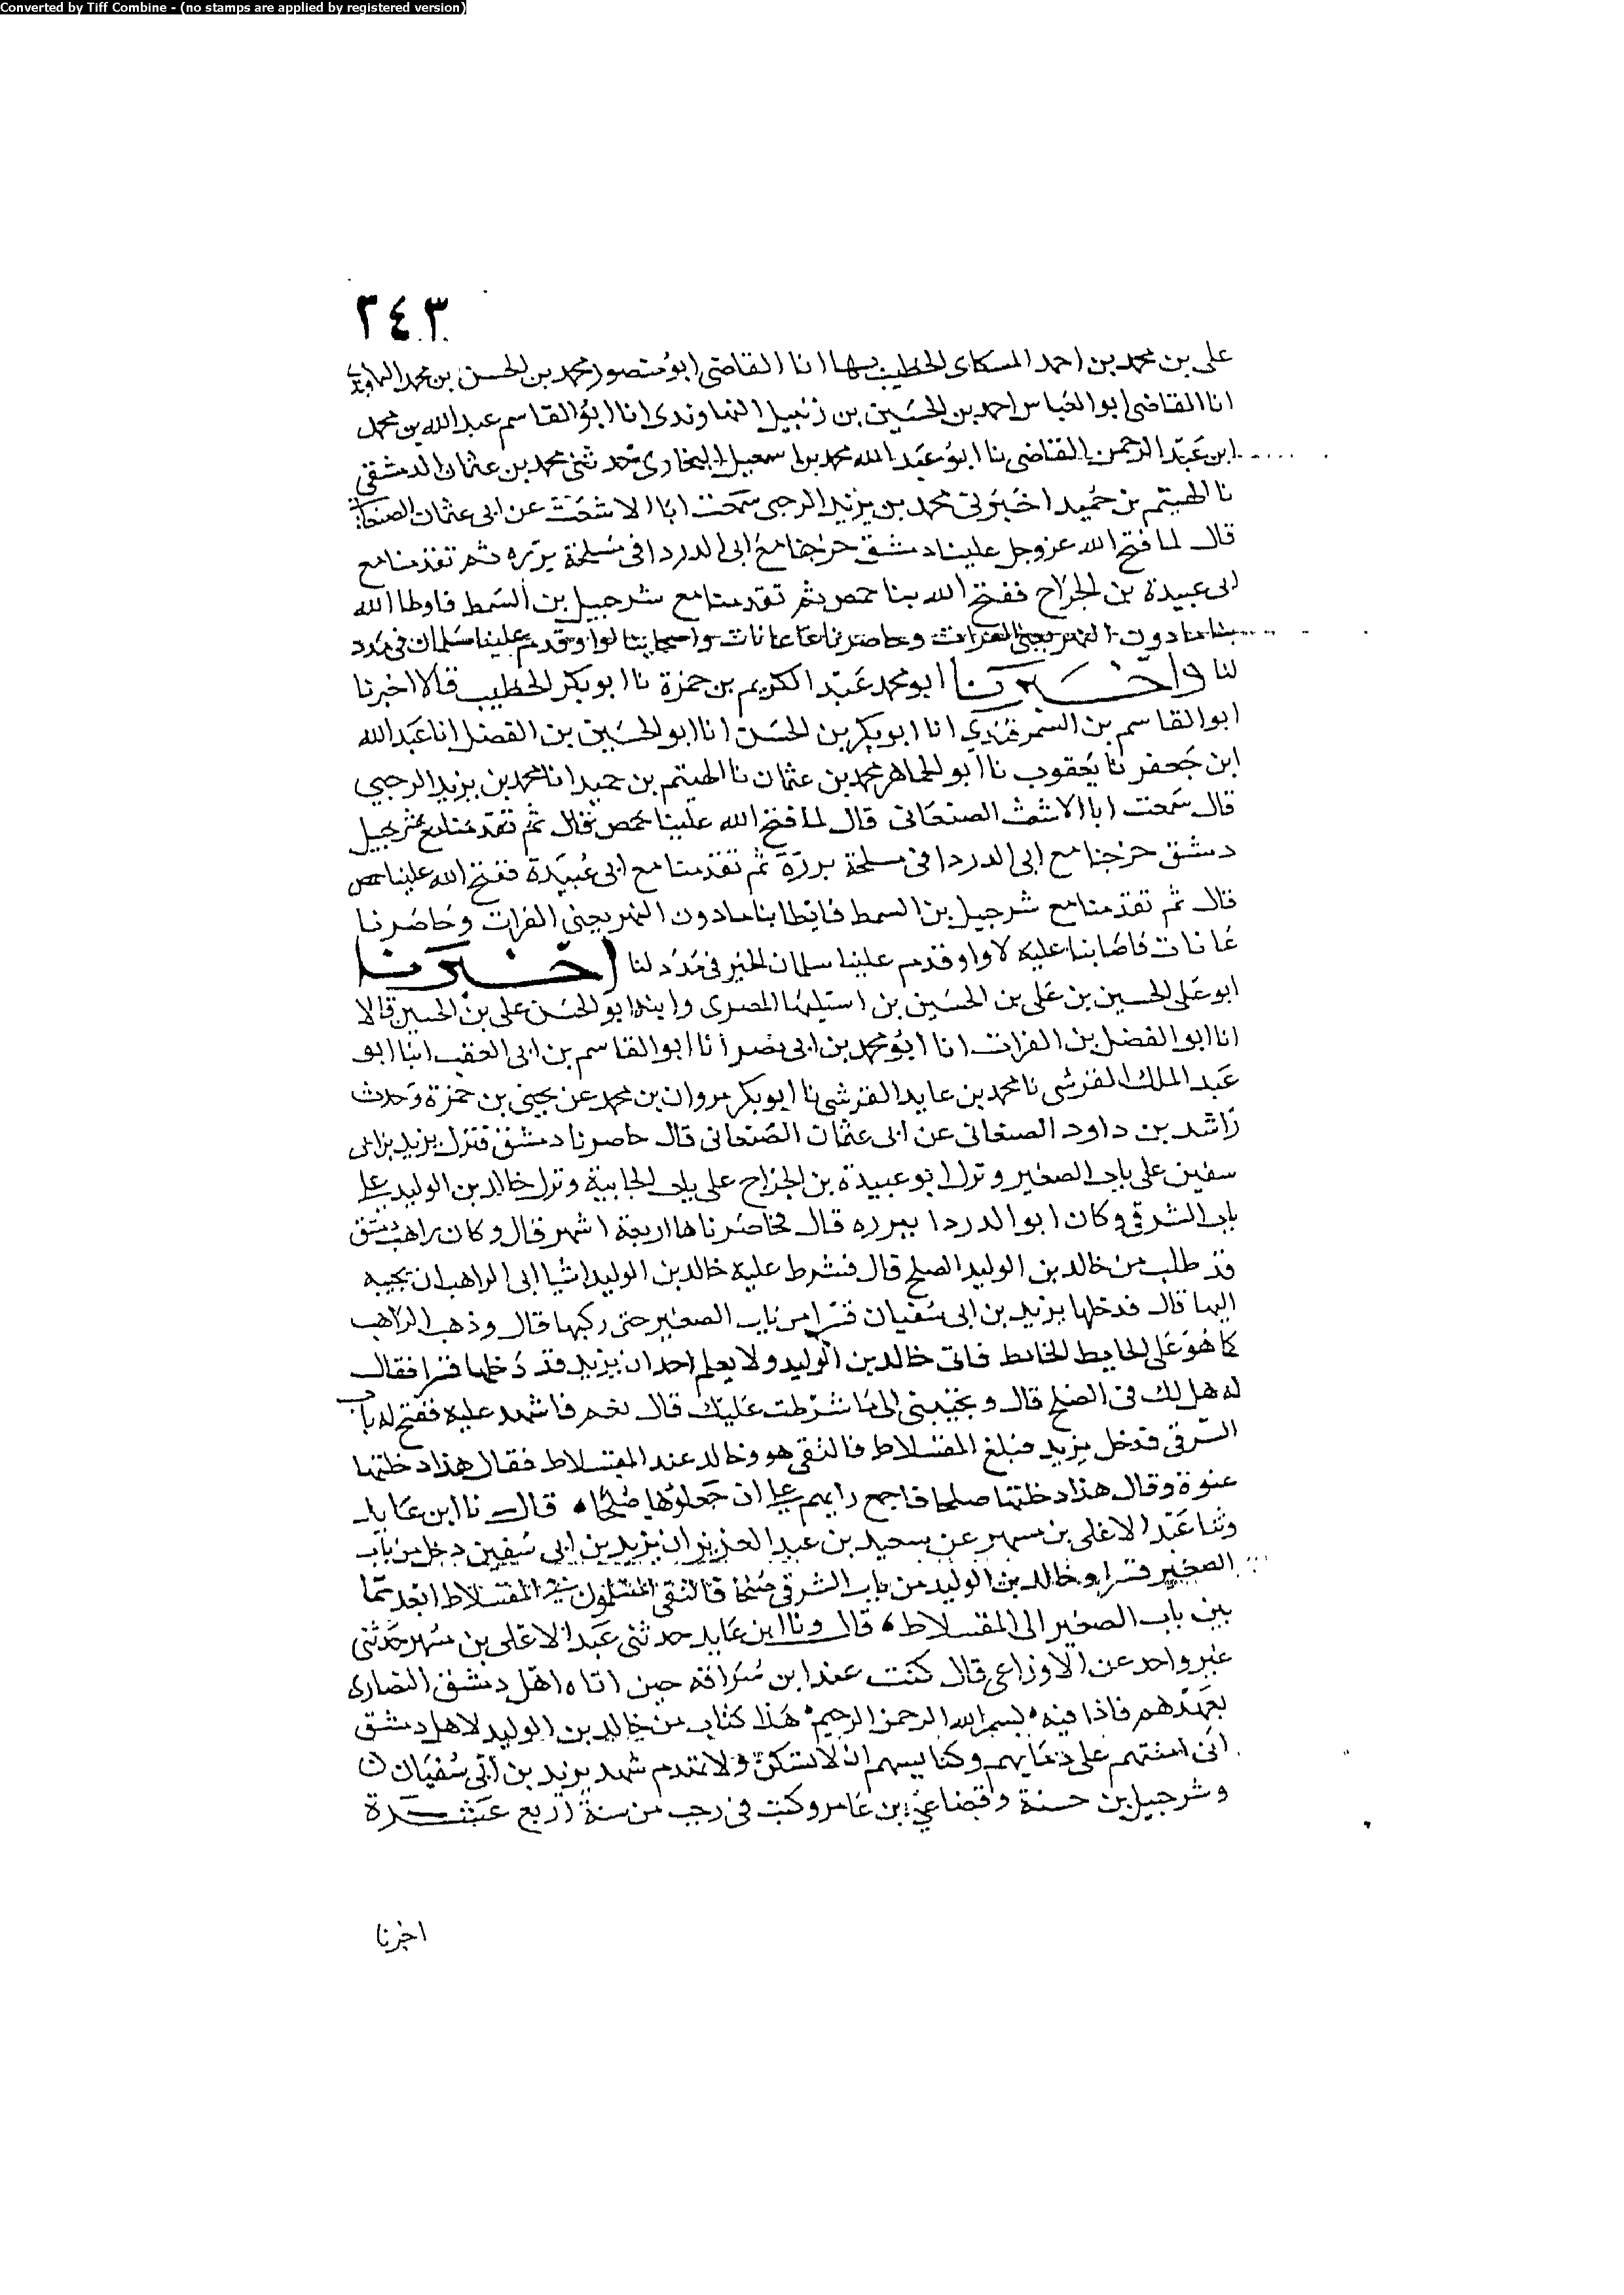 Converted by Tiff Combine - (no stamps are applied by registered version)
٢٤٣
على بن محمد بن احمد المسكاى الخطيب بها انا القاضى ابو منصور محمد بن الحسن بن محمد النهاوندى
انا القاضى ابو العباس احمد بن الحسين بن زنبيل النهاوندى انا ابو القاسم عبد الله بن محمد
ابن عبد الرحمن القاضى نا ابو عبد الله محمد بن اسمعيل البخارى حدثنى محمد بن عثمان الدمشقى
نا الهيتم بن حميد اخبرنى محمد بن يزيد الرحبى سمعت ابا الاشعث عن ابى عثمان الصنعانى
قال لما فتح الله عز وجل علينا دمشق خرجنا مع ابى الدردا فى مسلحة برزه ثم تقدمنا مع
ابى عبيدة بن الجراح ففتح الله بنا حمص ثم تقدمنا مع شرحبيل بن السمط فاوطا الله
بنا مادون النهر يعنى الفرات وحاصرنا عانات واصابنا لواو وقدم علينا سلمان فى مدد
لنا واخبرنا ابو محمد عبد الكريم بن حمزة نا ابو بكر الخطيب قالا اخبرنا
ابو القاسم بن السمرقندي انا ابو بكر بن الحسن انا ابو الحسين بن الفضل انا عبد الله
ابن جعفر نا يعقوب نا ابو الجماهر محمد بن عثمان نا الهيتم بن حميد انا محمد بن يزيد الرحبي
قال سمعت ابا الاشعث الصنعانى قال لما فتح الله علينا حمص قال ثم تقدمنا مع شرحبيل
دمشق خرجنا مع ابى الدردا فى مسلحة برزة ثم تقدمنا مع ابى عبيدة ففتح الله علينا حمص
قال ثم تقدمنا مع شرحبيل بن السمط فاوطا بنا مادون النهر يعنى الفرات وحاصرنا
عانات فاصابنا عليه لاواو قدم علينا سلمان الخير فى مدد لنا اخبرنا
ابو على الحسين بن على بن الحسين بن اشليها المصرى وابنه ابو الحسن على بن الحسين قالا
انا ابو الفضل بن الفرات انا ابو محمد بن ابى نصر انا ابو القاسم بن ابى العقب انبا ابو
عبد الملك القرشى نا محمد بن عايد القرشى نا ابو بكر مروان بن محمد عن يحيى بن حمزة وحدث
راشد بن داود الصنعانى عن ابى عثمان الصنعانى قال حاصرنا دمشق فنزل يزيد بن ابى
سفين على باب الصغير ونزل ابو عبيدة بن الجراح على باب الجابية ونزل خالد بن الوليد على
باب الشرقى وكان ابو الدردا ببرزه قال فحاصرناها اربعة اشهر قال وكان راهب دمشق
قد طلب من خالد بن الوليد الصلح قال فشرط عليه خالد بن الوليد اشيا ابى الراهب ان يجيبه
اليها قال فدخلها يزيد بن ابى سفيان قسرا من باب الصغير حتى ركبها قال وذهب الراهب
كما هو على الحايط الحايط فاتى خالد بن الوليد ولا يعلم احد ان يزيد قد دخلها قسرا فقال
له هل لك فى الصلح قال وتجيبنى الى ما شرطت عليك قال نعم فاشهد عليه ففتح له باب
الشرقى فدخل يزيد فبلغ المقسلاط فالتقى هو وخالد عند المقسلاط فقال هذا دخلتها
عنوة وقال هذا دخلتها صلحا فاجمع رايهم على ان جعلوها صلحا قال نا ابن عايد
وثنا عبد الاعلى بن مسهر عن سعيد بن عبد العزيز ان يزيد بن ابى سفين دخل من باب
الصغير قسرا وخالد بن الوليد من باب الشرقى صلحا فالتقى المسلمون المقسلاط ابعد مما
بين باب الصغير الى المقسلاط قال ونا ابن عايد حدثنى عبد الاعلى بن مسهر حدثنى
غير واحد عن الاوزاعى قال كنت عند ابن سراقه حين اتاه اهل دمشق النصارى
بعهدهم فاذا فيه بسم الله الرحمن الرحيم هذا كتاب من خالد بن الوليد لاهل دمشق
انى امنتهم على دمايهم وكنايسهم ان لا تسكن ولا تهدم شهد يزيد بن ابى سفيان
وشرحبيل بن حسنة وقضاعي بن عامر وكتب فى رجب من سنة اربع عشرة
اخبرنا